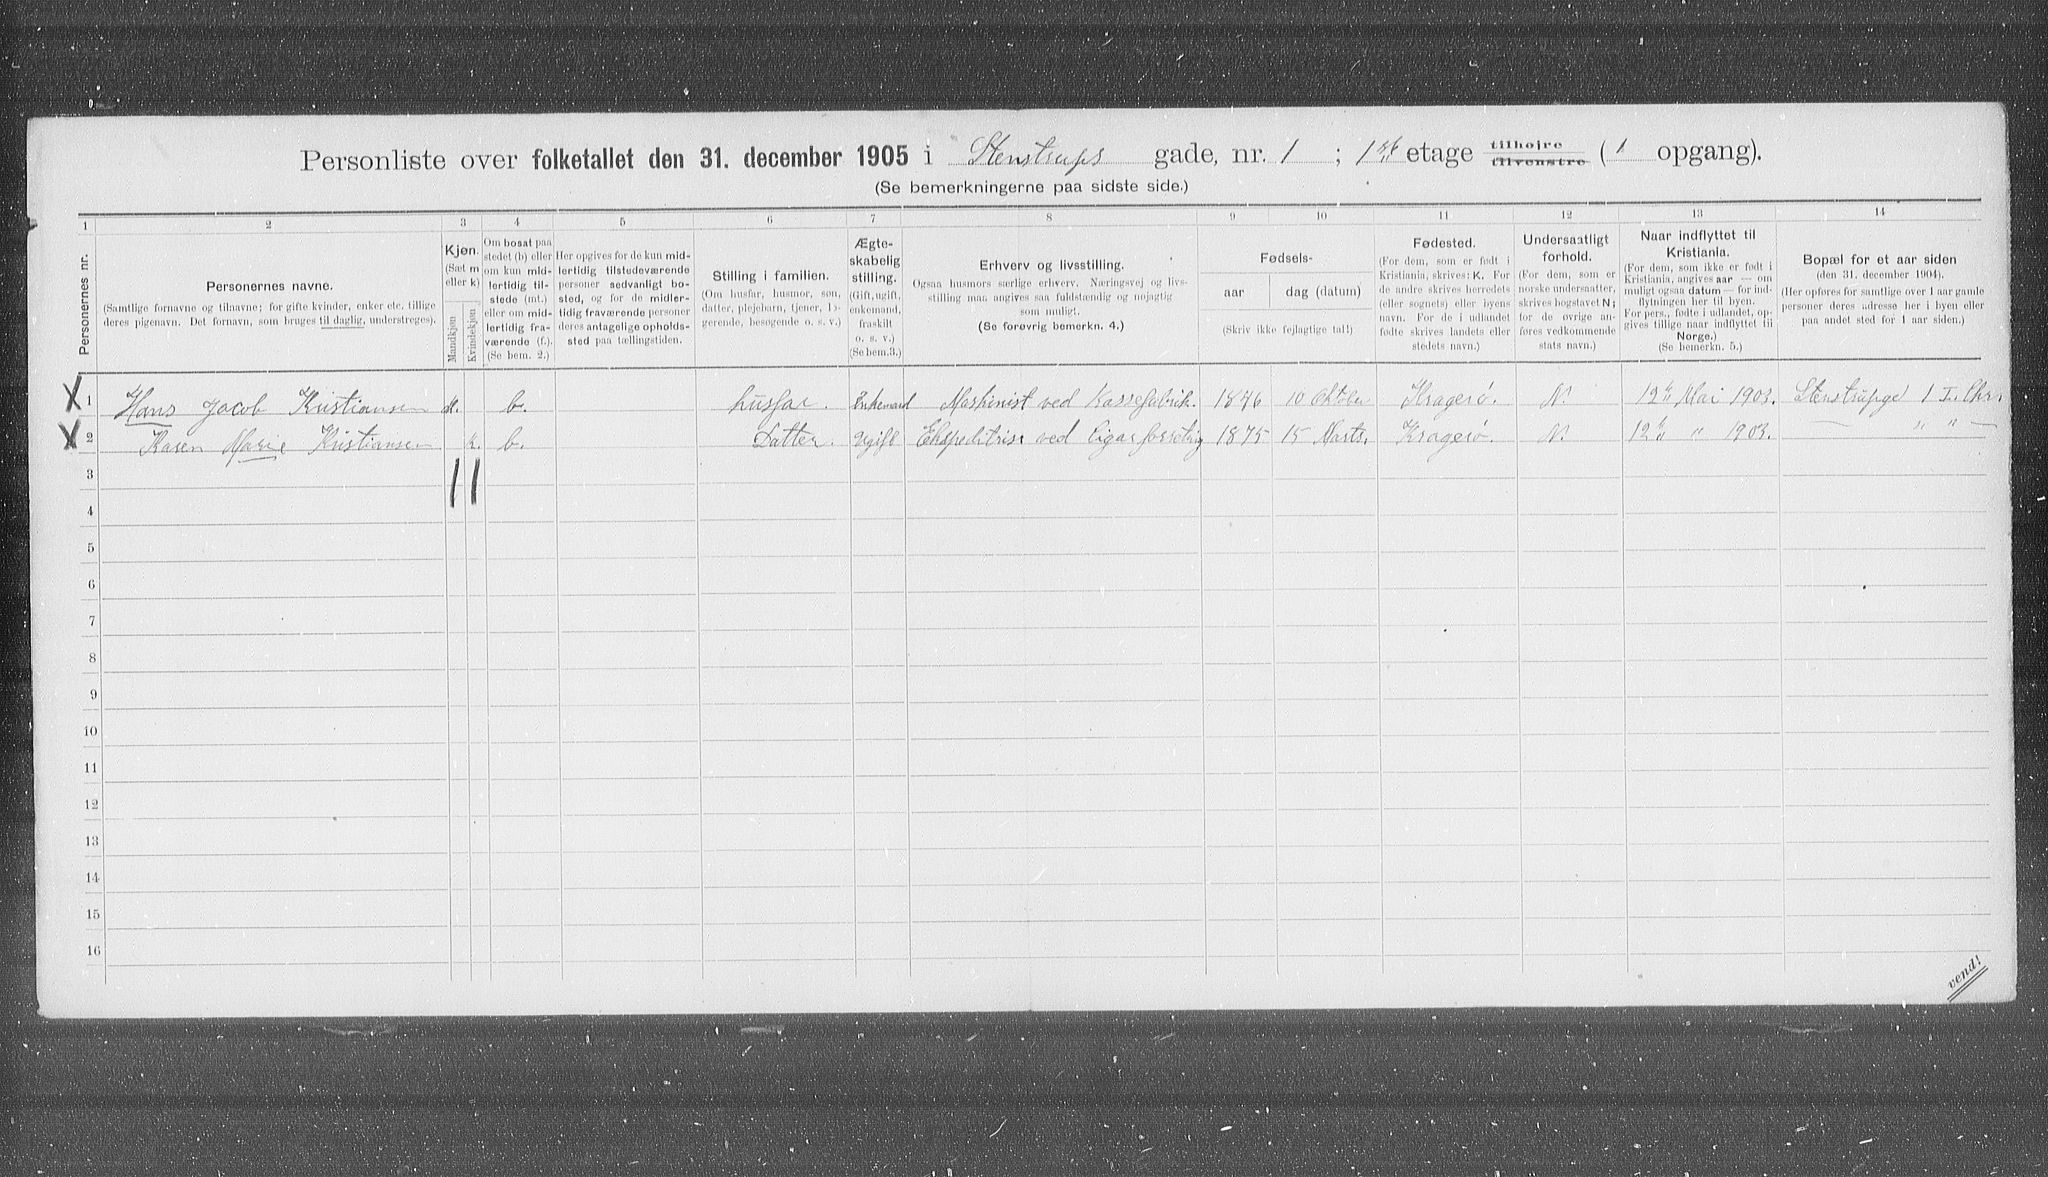 Personliste over folketallet den 31. december 1905 i Stenstrups gade, nr. 1 ; 1ste etage tilhøjre tilvenstre ( 1 opgang).
(Se bemerkningerne paa sidste side.)
1 2 3 4 5 6 7 8 9 10 11 12 13 14
Personernes nr.
Personernes navne.
(Samtlige fornavne og tilnavne; for gifte kvinder, enker etc. tillige
deres pigenavn. Det fornavn, som bruges til daglig, understreges).
Kjøn.
(Sæt m
eller k).
Mandkjøn
Kvindekjøn
Om bosat paa
stedet (b) eller
om kun mid-
lertidig til-
stede (mt.)
eller om mid-
lertidig fra-
værende (f.).
(Se bem. 2.)
Her opgives for de kun mid-
lertidig tilstedeværende
personer sedvanligt bo-
sted, og for de midler-
tidig fraværende personer
deres antagelige opholds-
sted paa tællingstiden.
Stilling i familien.
(Om husfar, husmor, søn,
datter, plejebarn, tjener, lo-
gerende, besøgende o. s. v.)
Ægte-
skabelig
stilling.
(Gift, ugift,
enkemand,
fraskilt
o. s. v.)
(Se bem.3.)
Erhverv og livsstilling.
Ogsaa husmors særlige erhverv. Næringsvej og livs-
stilling maa angives saa fuldstændig og nøjagtig
som muligt.
(Se forøvrig bemerkn. 4.)
Fødsels-
aar
dag (datum)
(Skriv ikke fejlagtige tal!)
Fødested.
(For dem, som er født i
Kristiania, skrives: K. For
de andre skrives herredets
(eller sognets) eller byens
navn. For de i udlandet
fødte skrives landets eller
stedets navn.)
Undersaatligt
forhold.
(For dem, som er
norske undersaatter,
skrives bogstavet N;
for de øvrige an-
føres vedkommende
stats navn.)
Naar indflyttet til
Kristiania.
(For dem, som ikke er født i
Kristiania, angives aar — om
muligt ogsaa datum — for ind-
flytningen her til byen.
For pers., fødte i udlandet, op-
gives tillige naar indflyttet til
Norge.)
(Se bemerkn. 5.)
Bopæl for et aar siden
(den 31. december 1904).
(Her opføres for samtlige over 1 aar gamle
personer deres adresse her i byen eller
paa andet sted for 1 aar siden.)
X 1 Hans Jacob Kristiansen M. b. husfar. Enkemand Maskinist ved Kassefabrik. 1876 10 Oktober Kragerø. N. 12te Mai 1903. Stenstrupgd 1 I. Chr.
X 2 Karen Marie Kristiansen k. b. Datter. Ugift Ekspeditrise ved Cigarforretnig 1875 15 Marts. Kragerø. N. 12te " 1903. — " " —
3
4
5
6
7
8
9
10
11
12
13
14
15
16
vend!